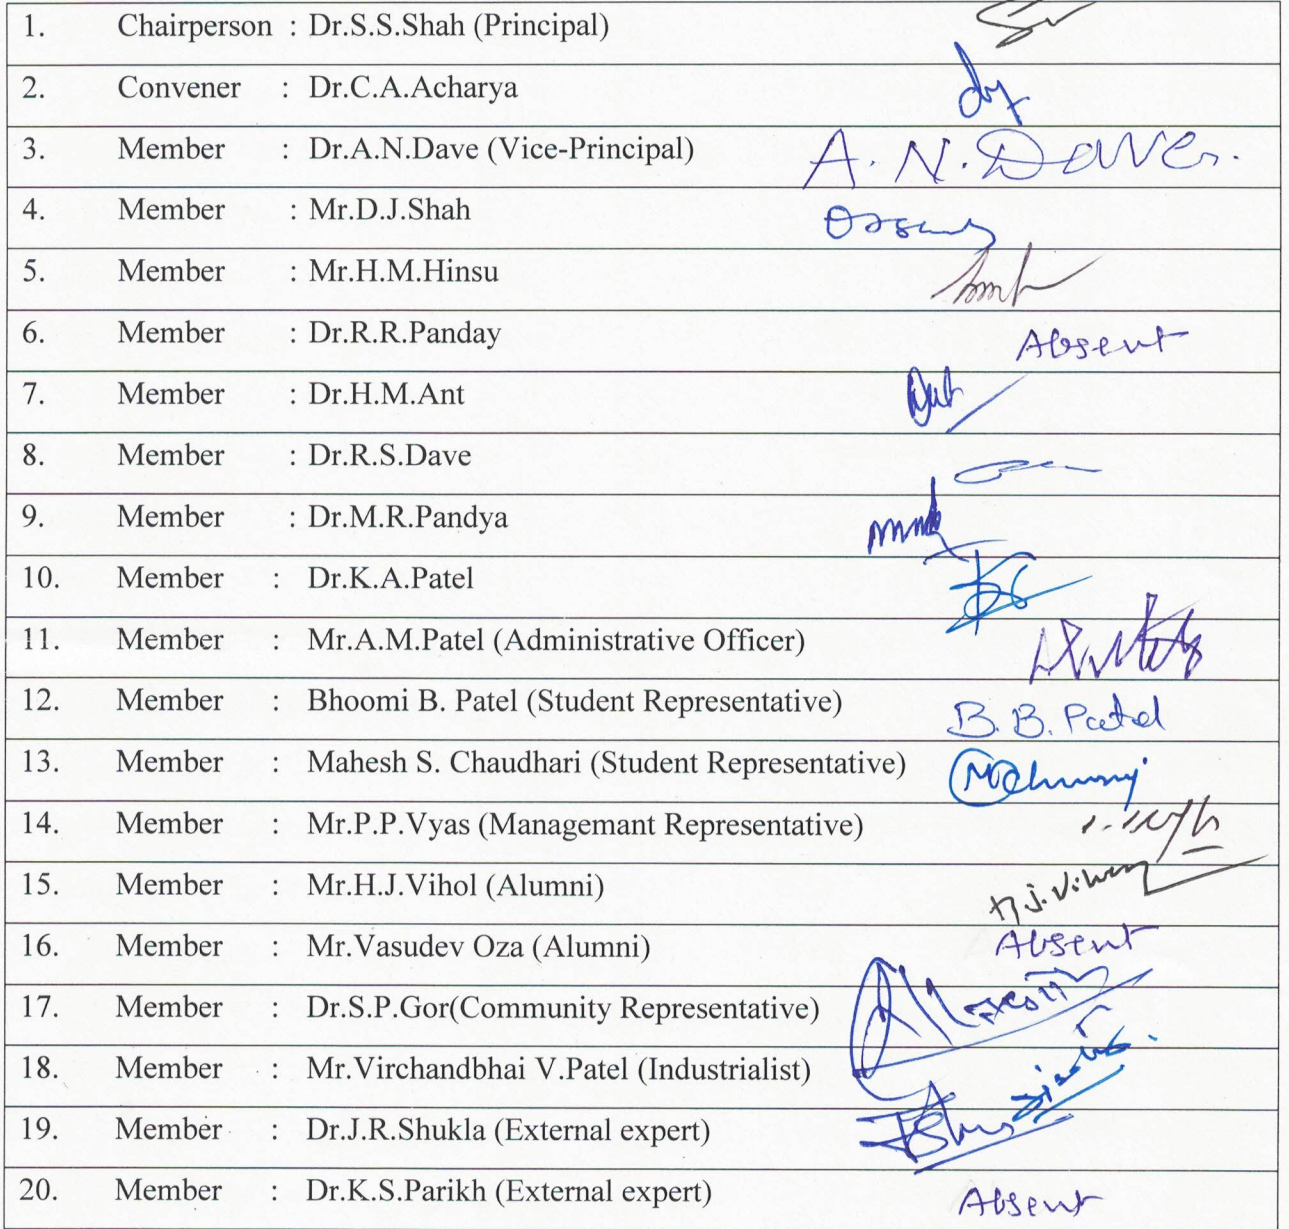 1. Chairperson : Dr.S.S.Shah (Principal)
2. Convener : Dr.C.A.Acharya
3. Member : Dr.A.N.Dave (Vice-Principal) A. N. Dave.
4. Member : Mr.D.J.Shah
5. Member : Mr.H.M.Hinsu
6. Member : Dr.R.R.Panday Absent
7. Member : Dr.H.M.Ant
8. Member : Dr.R.S.Dave
9. Member : Dr.M.R.Pandya
10. Member : Dr.K.A.Patel
11. Member : Mr.A.M.Patel (Administrative Officer)
12. Member : Bhoomi B. Patel (Student Representative) B. B. Patel
13. Member : Mahesh S. Chaudhari (Student Representative)
14. Member : Mr.P.P.Vyas (Managemant Representative)
15. Member : Mr.H.J.Vihol (Alumni)
16. Member : Mr.Vasudev Oza (Alumni) Absent
17. Member : Dr.S.P.Gor(Community Representative)
18. Member : Mr.Virchandbhai V.Patel (Industrialist)
19. Member : Dr.J.R.Shukla (External expert)
20. Member : Dr.K.S.Parikh (External expert) Absent